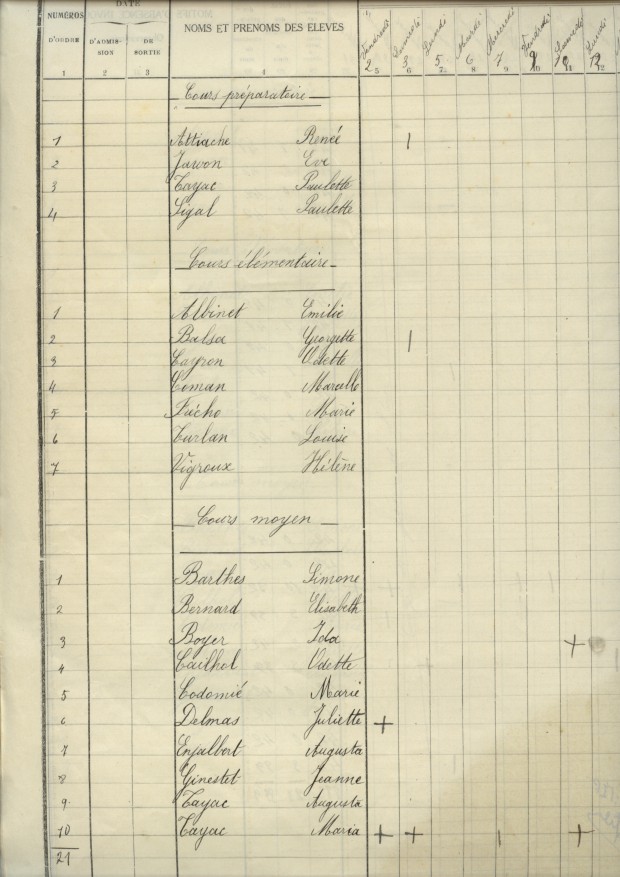 NUMÉROS D'ORDRE DATE NOMS ET PRENOMS DES ELEVES
D'ADMISSION DE SORTIE
Vendredi Samedi Lundi Mardi Mercredi Vendredi Samedi Lundi
2 3 5 6 7 9 10 12
1 2 3 4 5 6 7 8 9 10 11 12
Cours préparatoire
1 Attiache Renée
2 Eve
3 Tayac Paulette
4 Sigal Paulette
Cours élémentaire
1 Albinet Emilie
2 Balsa Georgette
3 Cayron Odette
4 Coman Marcelle
5 Marie
6 Turlan Louise
7 Vigroux Hélène
Cours moyen
1 Barthes Simone
2 Bernard Elisabeth
3 Boyer Ida
4 Cailhol Odette
5 Codomié Marie
6 Delmas Juliette
7 Enjalbert Augusta
8 Ginestet Jeanne
9 Tayac Augusta
10 Tayac Maria
21